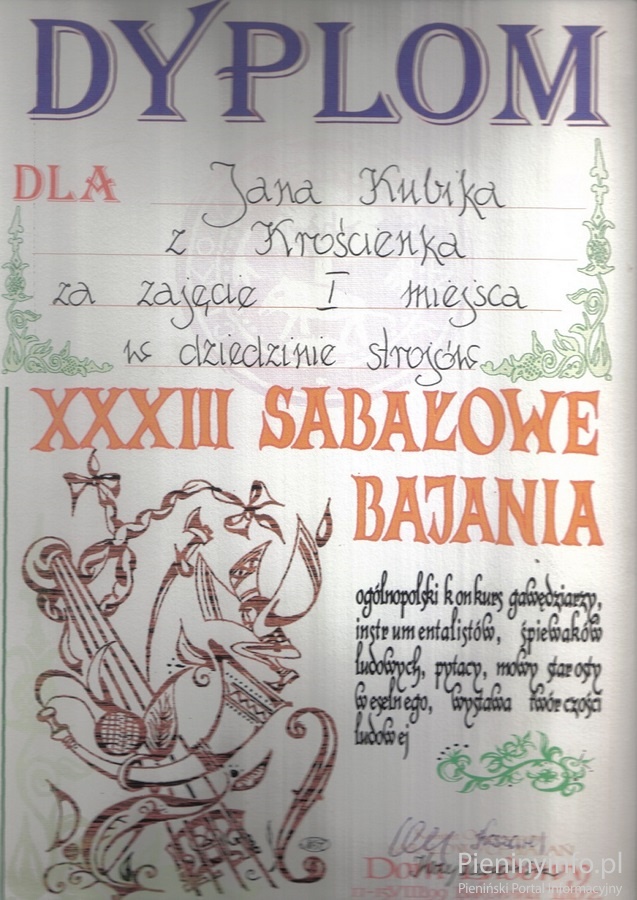 DYPLOM
DLA Jana Kubika
z Krościenka
za zajęcie I miejsca
w dziedzinie strojów
XXXIII SABAŁOWE
BAJANIA
ogólnopolski konkurs gawędziarzy,
instrumentalistów, śpiewaków
ludowych, pytacy, mowy starosty
weselnego, wystawa twórczości
ludowej
Pieninyinfo.pl
Pieniński Portal Informacyjny